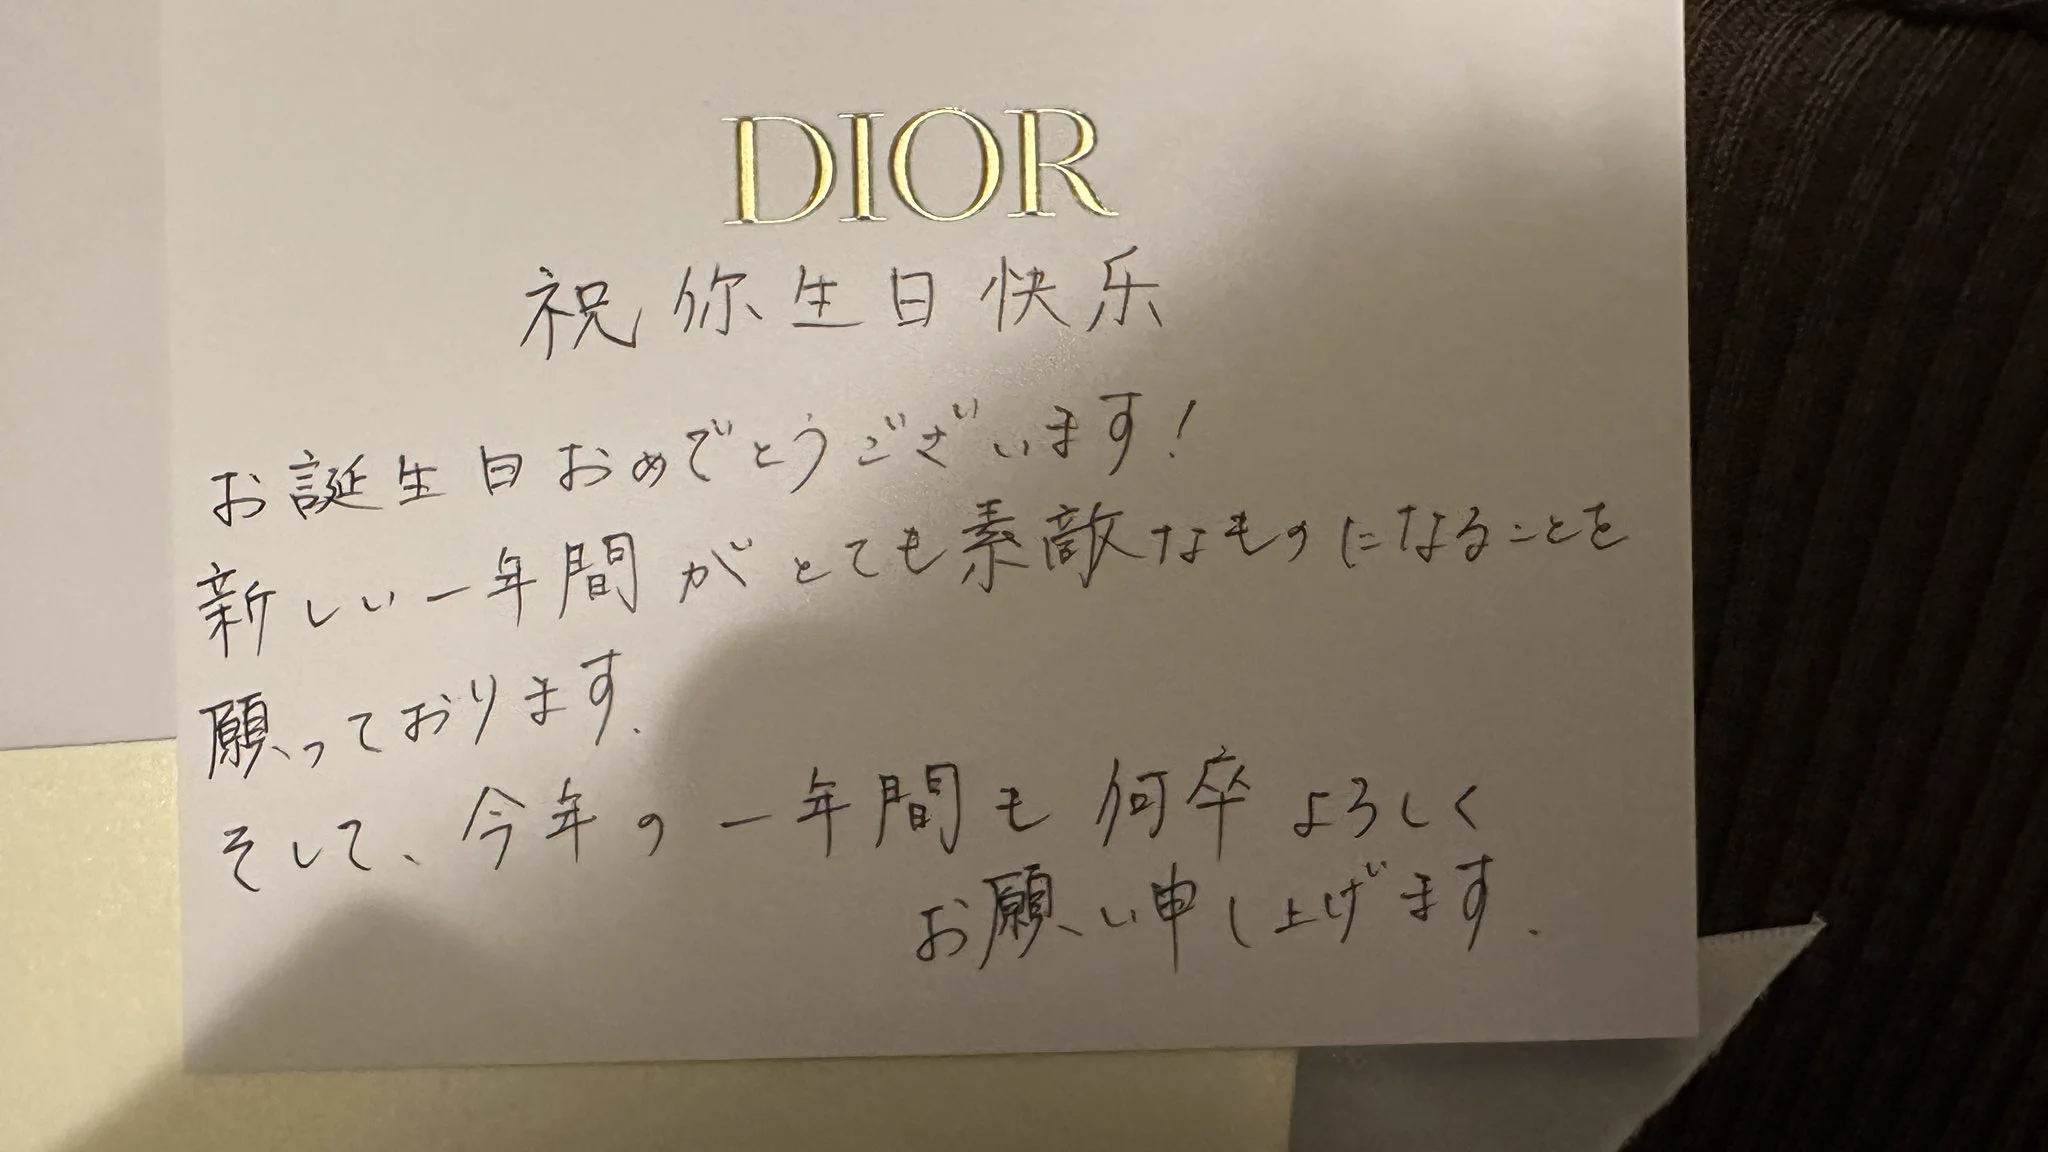 DIOR
祝你生日快乐
お誕生日おめでとうございます!
新しい一年間がとても素敵なものになることを
願っております.
そして、今年の一年間も何卒よろしく
お願い申し上げます.